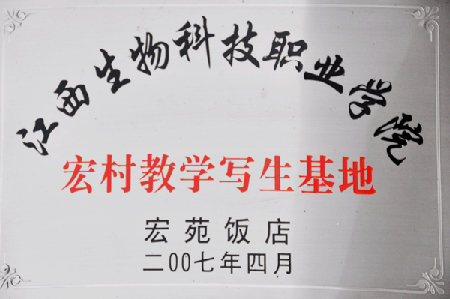 江西生物科技职业学院
宏村教学写生基地
宏苑饭店
二00七年四月